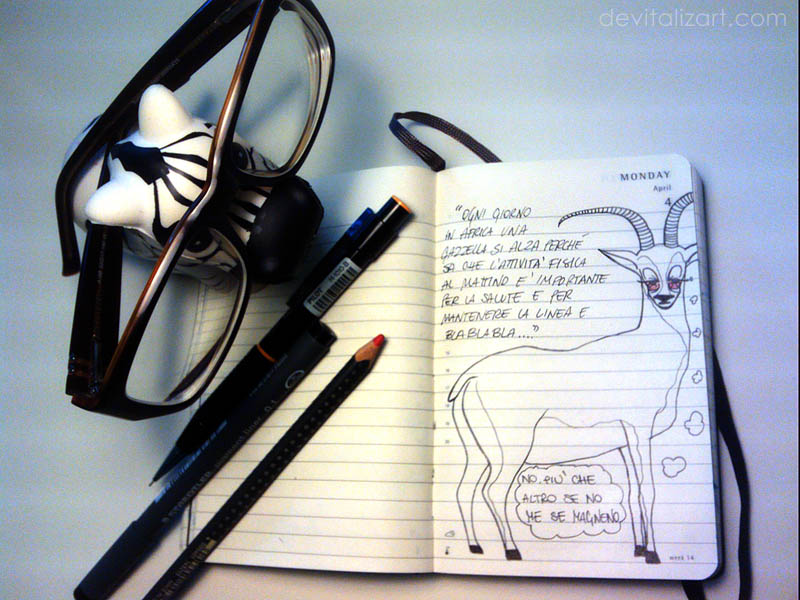 devitalizart.com
MONDAY
April
4
"OGNI GIORNO
IN AFRICA UNA
GAZZELLA SI ALZA PERCHÉ
SA CHE L'ATTIVITA' FISICA
AL MATTINO E' IMPORTANTE
PER LA SALUTE E PER
MANTENERE LA LINEA E
BLABLABLA...."
NO. PIU' CHE
ALTRO SE NO
ME SE MAGNENO
week 14